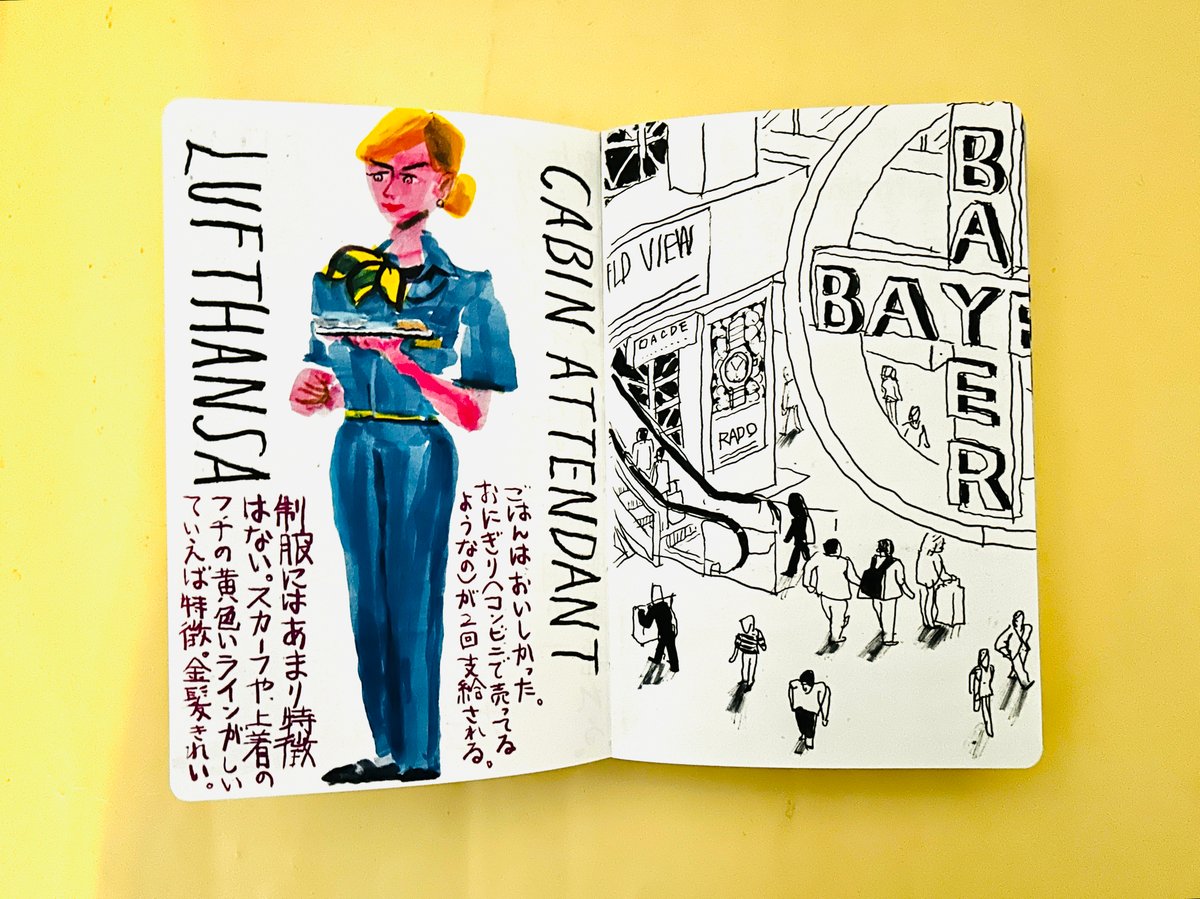 LUFTHANSA
制服にはあまり特徴
はない。スカーフや、上着の
フチの黄色いラインがしい
ていえば特徴。金髪きれい。
CABIN ATTENDANT
ごはんはおいしかった。
おにぎり(コンビニで売ってる
ようなの)が2回支給される。
LD VIEW
RADO
BAYER
BAYER